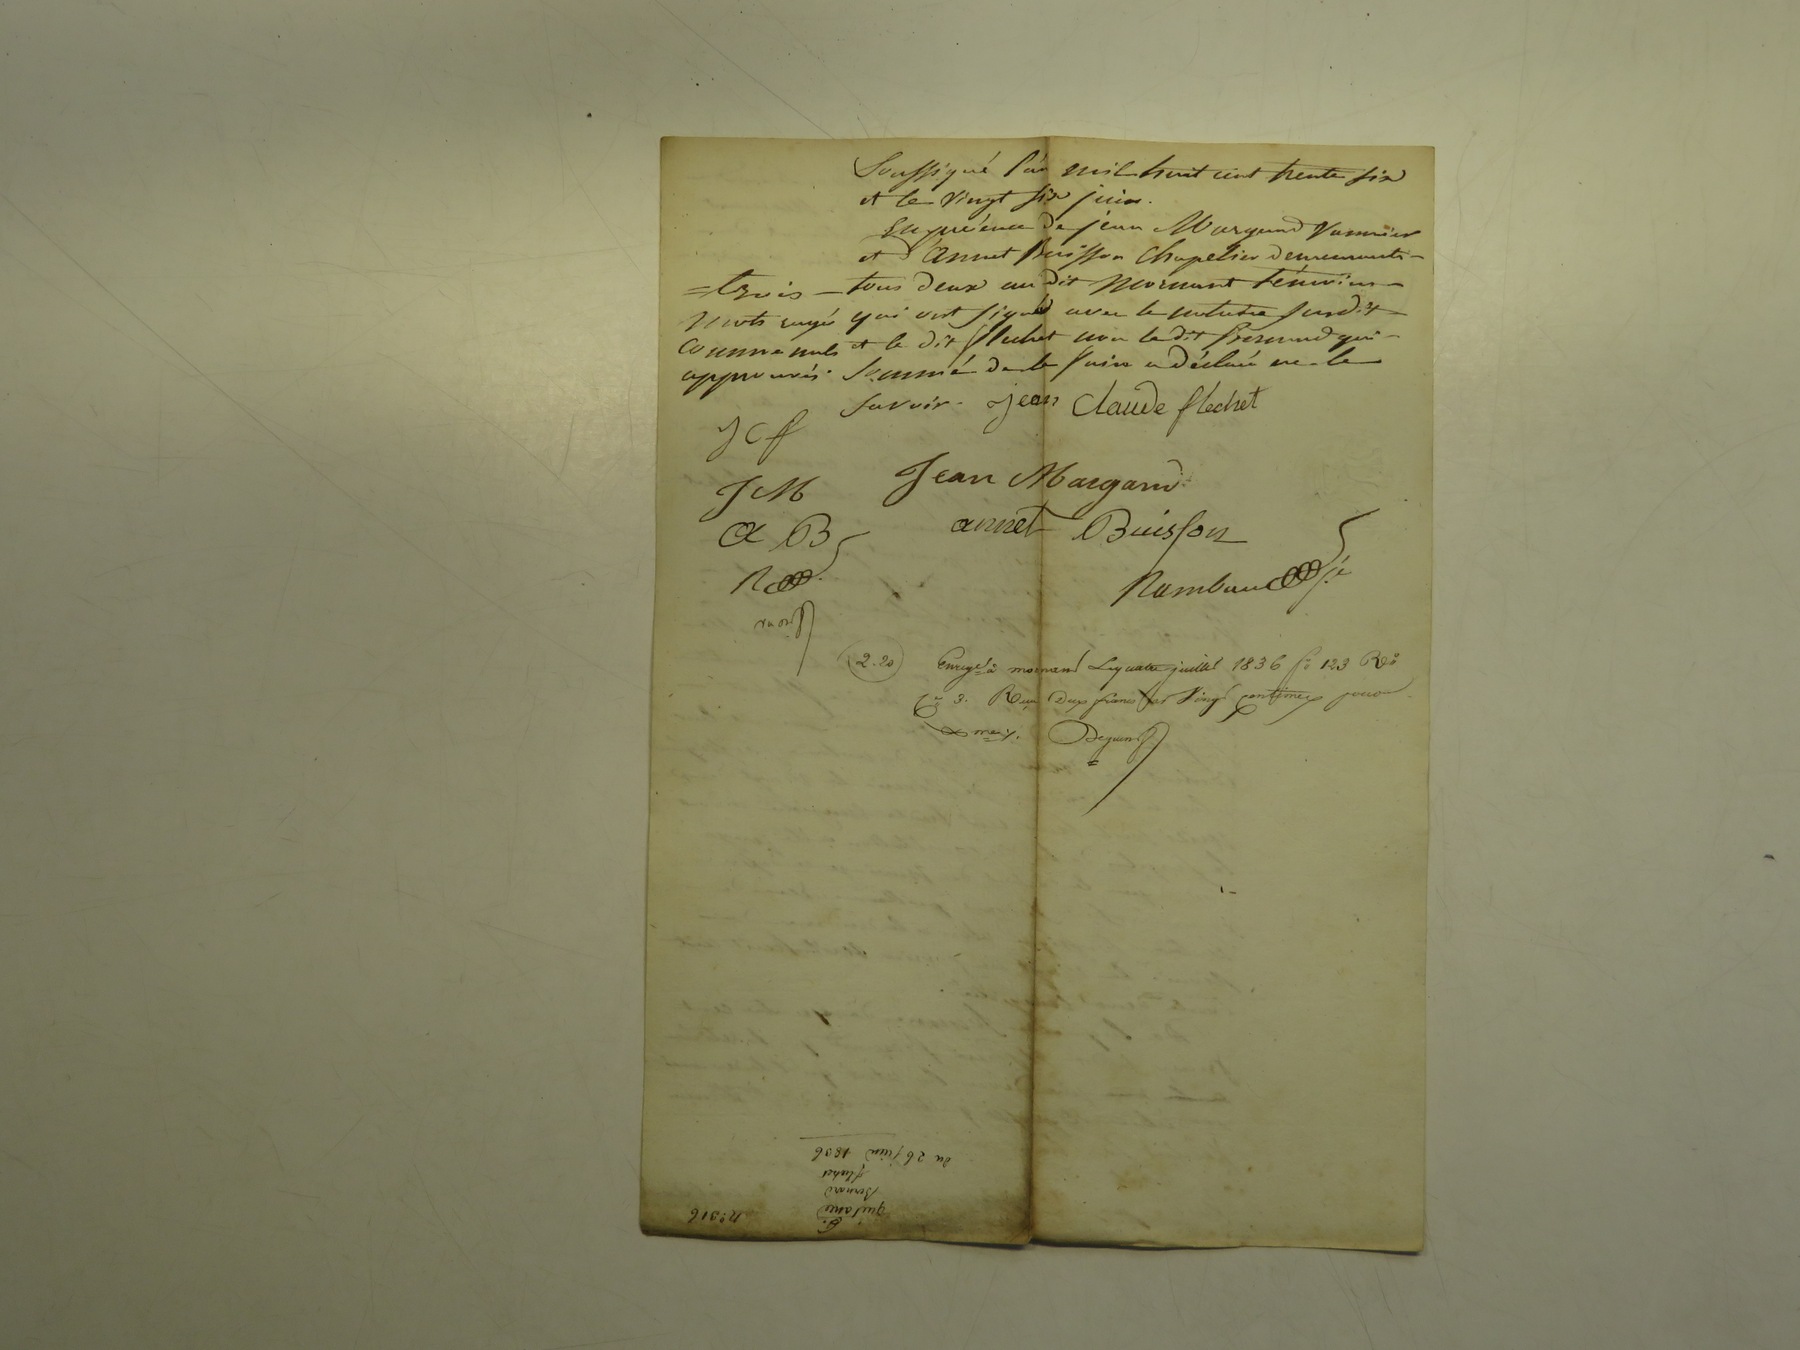 Soussigné l'an mil huit cent trente six
et le vingt six juin.
En présence de jean Margand Vannier
et d'annet Buisson Chapelier demeurants
tous deux au dit Mornant témoins
qui ont signé avec le notaire susdit
et le dit flechet non le dit qui
sommé de le faire a déclaré ne le
savoir. Jean Claude flechet
= trois
mots rayés
comme nuls
approuvés.
JCf
JM
Jean Margand
a B
annet Buisson
R
Rambaud
2.20
Enregé à mornant Le quatre juillet 1836 fo 123 Ro
Ce 3. Reçu Deux francs et Vingt centimes pour
Du 26 juin 1836
flechet
Bernard
quitance
No 316